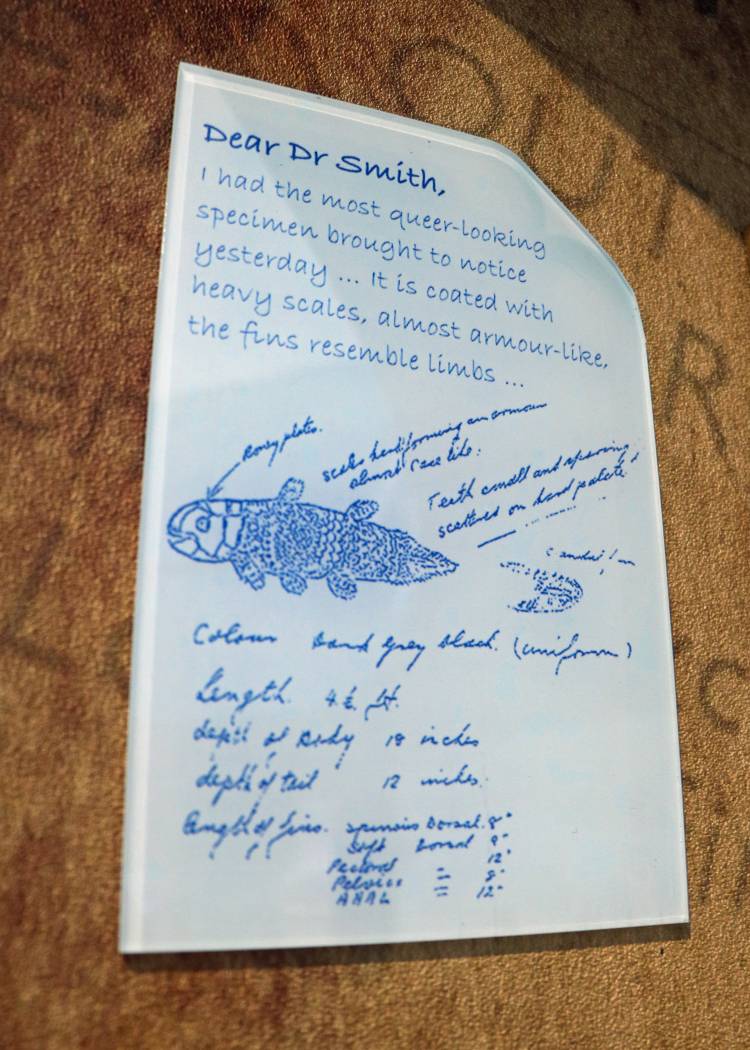 Dear Dr Smith,
I had the most queer-looking
specimen brought to notice
yesterday ... It is coated with
heavy scales, almost armour-like,
the fins resemble limbs ...
Boney plates.
scales hard forming an armour
almost case like.
Teeth small and
scattered on hard palate
Colour hard grey black. (uniform)
Length. 4½ ft.
depth of Body 18 inches
depth of tail 12 inches.
length of fins. spinous Dorsal. 8"
Soft Dorsal 9"
Pectoral 12"
Pelvics = 8"
ANAL = 12"